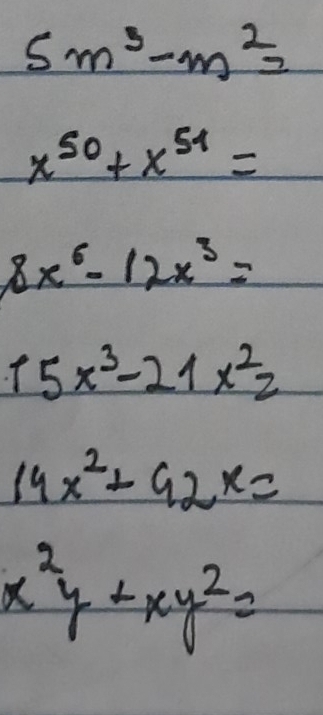 5m³-m²=
x⁵⁰+x⁵¹=
8x⁶-12x³=
15x³-21x²=
14x²+42x=
x²y+xy²=